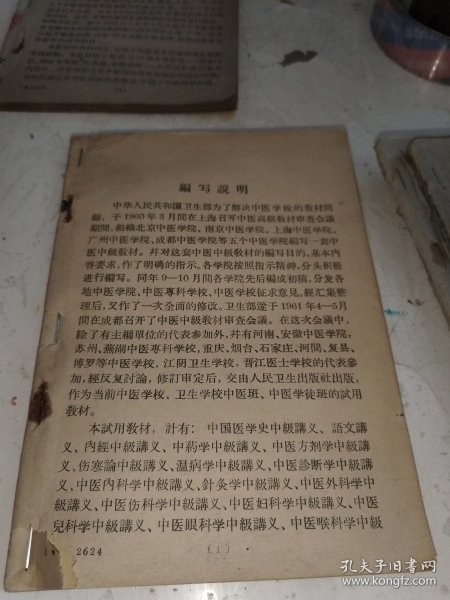 編写說明
中华人民共和国卫生部为了解决中医学校的敎材問
題、于1960年3月間在上海召开中医高級敎材审查会議
期間，組織北京中医学院、南京中医学院、上海中医学院、
广州中医学院、成都中医学院等五个中医学院編写一套中
医中級敎材。并对这套中医中級敎材的編写目的、基本內
容要求，作了明确的指示。各学院按照指示精神，分头积极
进行編写。同年9—10月間各学院先后編成初稿，分发各
地中医学院、中医專科学校、中医学校征求意見。經汇集整
理后，又作了一次全面的修議。卫生部遂于1961年4—5月
間在成都召开了中医中級敎材审查会議。在这次会議中，
除了有主編單位的代表参加外，并有河南、安徽中医学院，
苏州、蕪湖中医專科学校，重庆、烟台、石家庄、河間、复县、
博罗等中医学校，江阴卫生学校，晋江医士学校的代表参
加，經反复討論，修訂审定后，交由人民卫生出版社出版，
作为当前中医学校、卫生学校中医班、中医学徒班的試用
敎材。
本試用敎材，計有：中国医学史中級講义、語文講
义、內經中級講义、中药学中級講义、中医方剂学中級講
义、伤寒論中級講义、温病学中級講义、中医診断学中級講
义、中医內科学中級講义、針灸学中級講义、中医外科学中
級講义、中医伤科学中級講义、中医妇科学中級講义、中医
兒科学中級講义、中医眼科学中級講义、中医喉科学中級
2624
(1)
孔夫子旧书网
www.kongfz.com